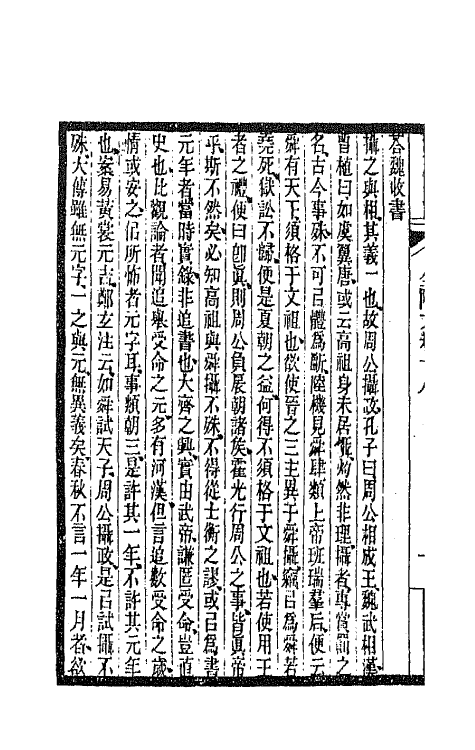 荅魏收書
攝之與相其義一也故周公攝政孔子曰周公相成王魏武相漢
曹植曰如虞翼唐或云高祖身未居攝灼然非理攝者專賞罰之
名古今事殊不可㠯體為斷陸機見舜肆類上帝班瑞羣后便云
舜有天下須格于文祖也欲使晉之三主異于舜攝竊㠯為舜若
堯死獄訟不歸便是夏朝之益何得不須格于文祖也若使用王
者之禮便曰卽眞則周公負扆朝諸侯霍光行周公之事皆眞帝
乎斯不然矣必知高祖與舜攝不殊不得從士衡之謬或㠯為書
元年者當時實錄非追書也大齊之興實由武帝謙匿受命豈直
史也比觀論者聞追舉受命之元多有河漢但言追數受命之歲
情或安之似所怖者元字耳事類朝三是許其一年不許其元年
也案易黃裳元吉鄭玄注云如舜試天子周公攝政是㠯試攝不
殊大傳雖無元字一之與元無異義矣春秋不言一年一月者欲